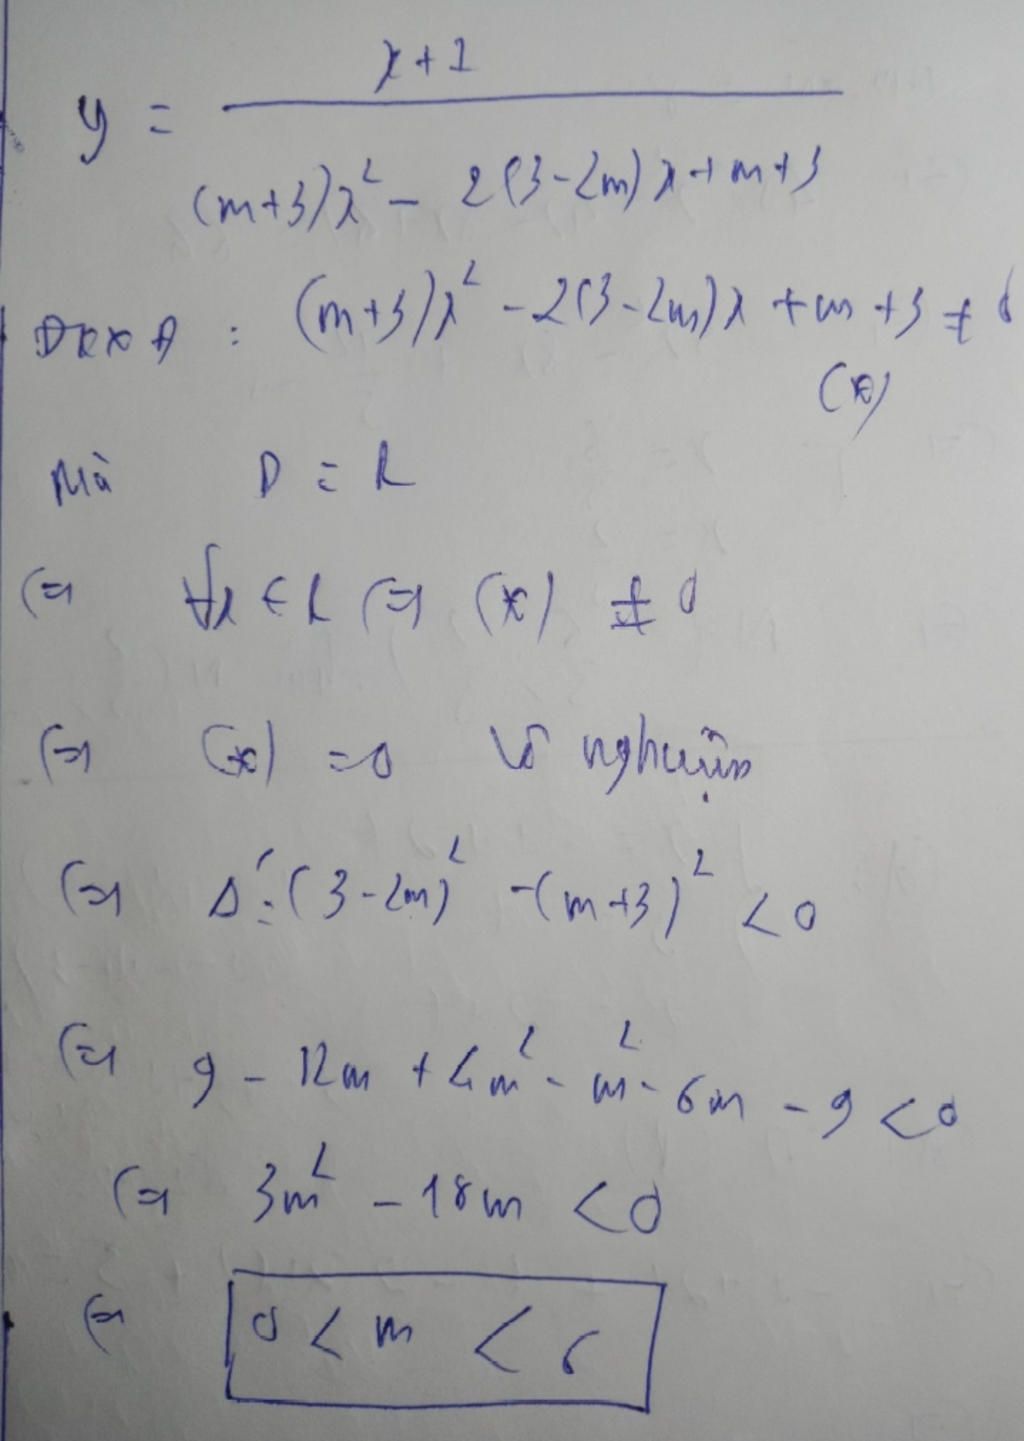 x+1
y =
(m+3)x² - 2(3-2m)x+m+3
ĐKXĐ : (m+3)x² - 2(3-2m)x + m + 3 ≠ 0
(*)
Mà D = R
⇔ ∀x ∈ R ⇔ (*) ≠ 0
⇔ (*) = 0 vô nghiệm
⇔ Δ' = (3-2m)² - (m+3)² < 0
⇔ 9 - 12m + 4m² - m² - 6m - 9 < 0
⇔ 3m² - 18m < 0
⇔ 0 < m < 6